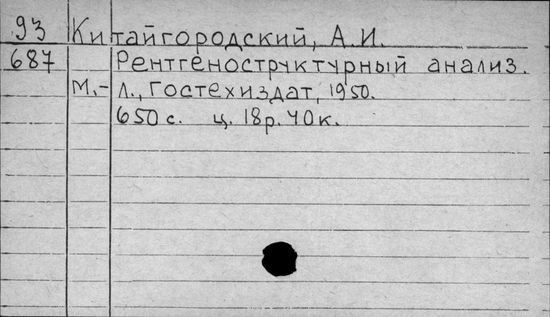 93 Китайгородский, А.И.
687 Рентгеноструктурный анализ.
М.-Л., Гостехиздат, 1950.
650 с. ц. 18р. 40к.